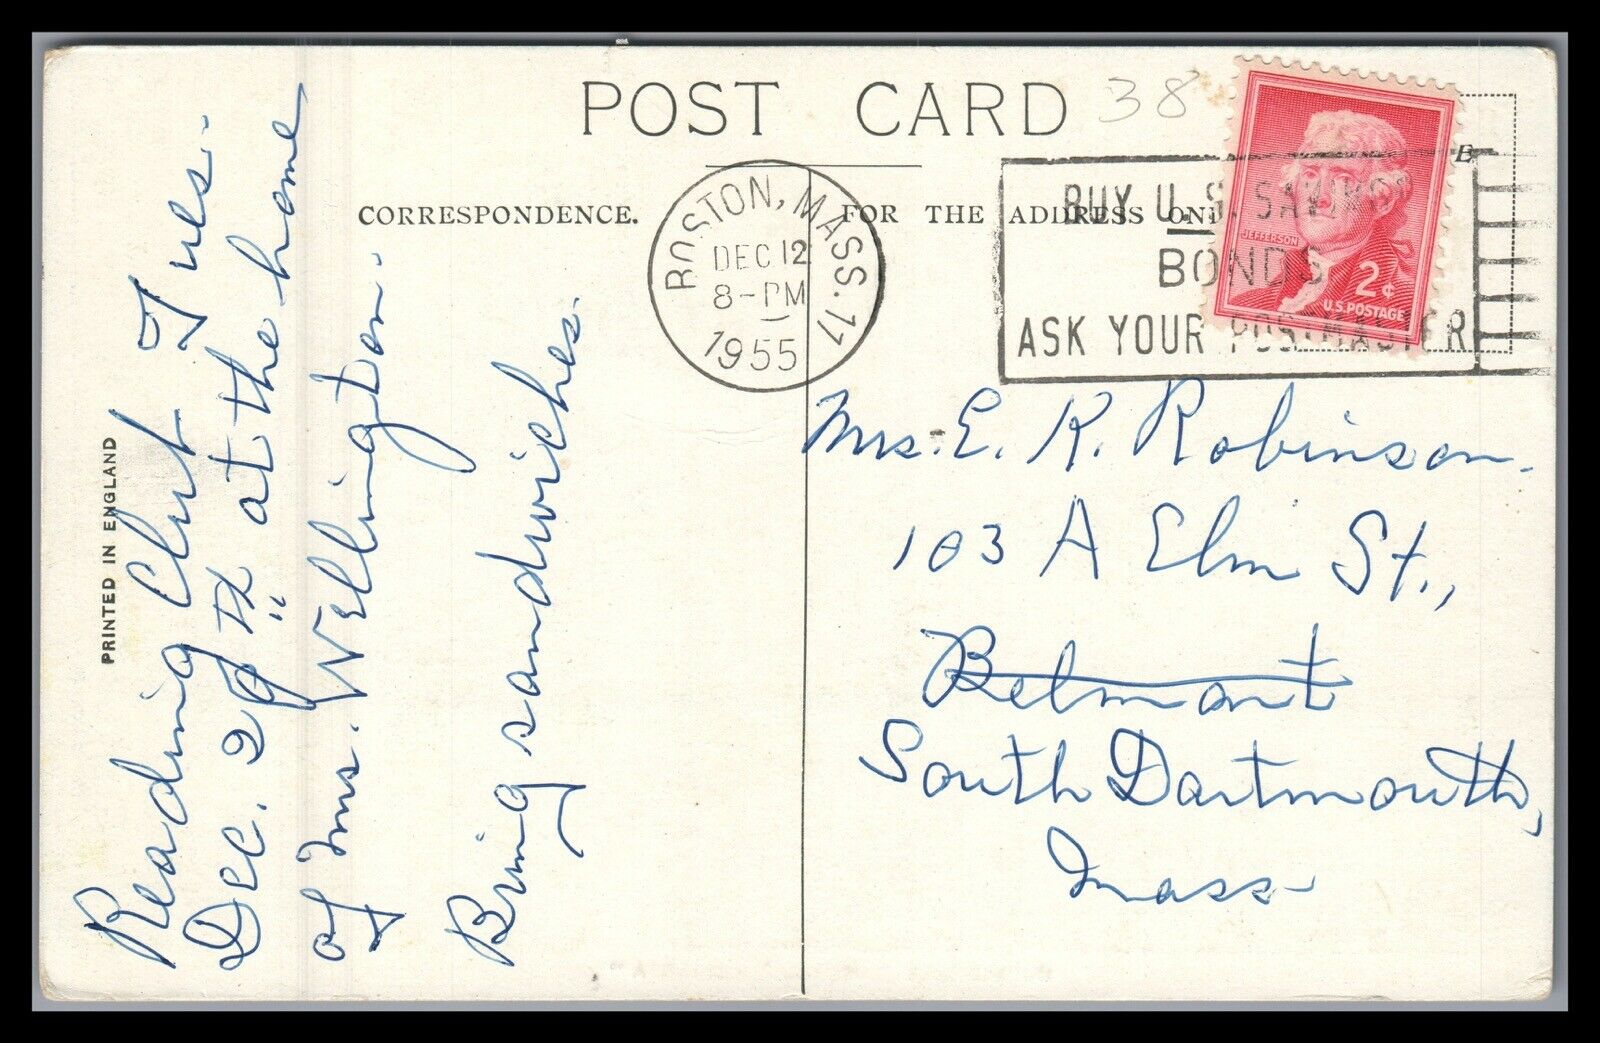 POST CARD
38
CORRESPONDENCE.
FOR THE ADDRESS ONL
BOSTON, MASS. 17
DEC 12
8-PM
1955
BUY U.S. SAVINGS
BONDS
ASK YOUR POSTMASTER
JEFFERSON
2¢
U.S. POSTAGE
PRINTED IN ENGLAND
Reading Club Tues.
Dec. 29th at the home
of Mrs. Wellington.
Bring sandwiches.
Mrs. E. R. Robinson.
103 A Elm St.,
Belmont
South Dartmouth,
Mass.